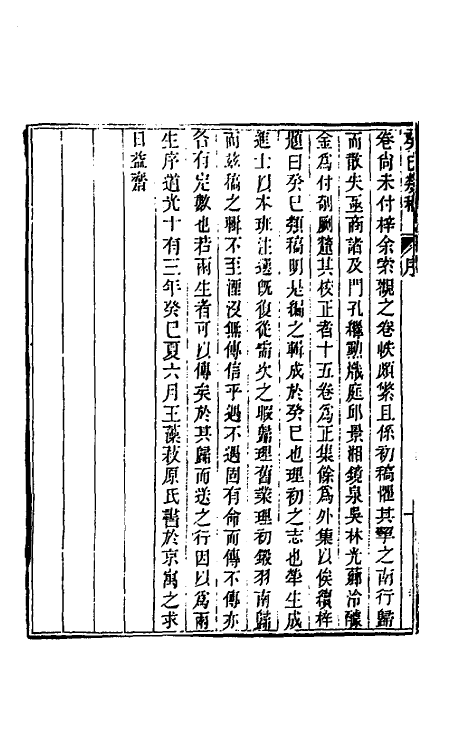 癸巳類稿 序 一
卷尚未付梓余索觀之卷帙頗繁且係初稿懼其挈之南行歸
而散失亟商諸及門孔繼勲熾庭邱景湘鏡泉吳林光蘅冷醵
金爲付剞劂釐其校正者十五卷爲正集餘爲外集以俟續梓
題曰癸巳類稿明是編之輯成於癸巳也理初之志也犖生成
進士以本班注選旣復從需次之暇歸理舊業理初鎩羽南歸
而茲稿之輯不至湮沒無傳信乎遇不遇固有命而傳不傳亦
各有定數也若兩生者可以傳矣於其歸而送之行因以爲兩
生序道光十有三年癸巳夏六月王藻菽原氏書於京寓之求
日益齋